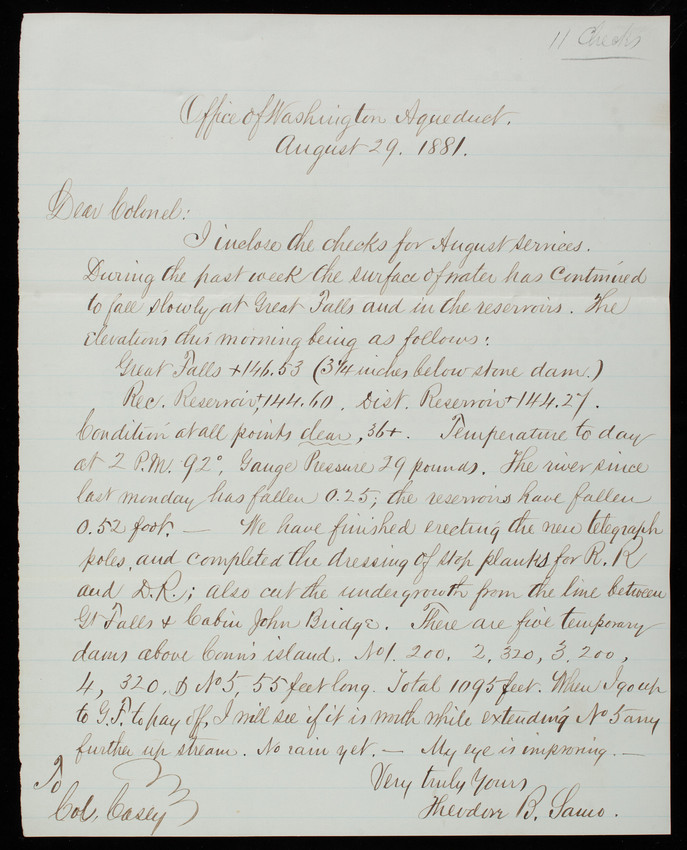 11 Checks
Office of Washington Aqueduct.
August 29. 1881.
Dear Colonel:
I inclose the checks for August services.
During the past week the surface of water has continued
to fall slowly at Great Falls and in the reservoirs. The
elevations this morning being as follows:
Great Falls +146.53 (3 1/4 inches below stone dam.)
Rec. Reservoir +144.60. Dist. Reservoir +144.27.
Condition at all points clear, 36+. Temperature to day
at 2 P.M. 92°, Gauge Pressure 29 pounds. The river since
last monday has fallen 0.25; the reservoirs have fallen
0.52 foot. — We have finished erecting the new telegraph
poles, and completed the dressing of stop planks for R. R
and D.R.; also cut the undergrowth from the line between
Gt Falls & Cabin John Bridge. There are five temporary
dams above Conn's island. No 1. 200. 2, 320, 3. 200,
4, 320. & No 5, 55 feet long. Total 1095 feet. When I go up
to G.F. to pay off, I will see if it is worth while extending No 5 any
further up stream. No rain yet. — My eye is improving. —
Very truly Yours
Theodore B. Samo.
To
Col. Casey